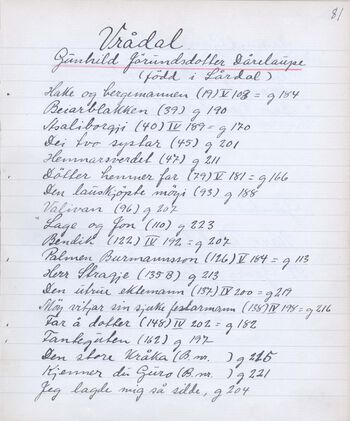 81
Vrådal
Gunhild Jörundsdotter Dårelaupe
(född i Lårdal)
Hake og bergemannen (19) V 103 = g 184
Beiarblakken (39) g 190
Åsaliborgji (40) IV 189 = g 170
Dei två systar (45) g 201
Hemnarsverdet (47) g 211
Dotter hemner far (79) V 181 = g 166
Den lauskjöpte möyi (93) g 188
Valivan (96) g 207
Lage og Jon (110) g 223
Bendik (122) IV 192 = g 207
Palmen Burmannsson (126) V 184 = g 113
Herr Stragje (135B) g 213
Den utrue ektemann (137) IV 200 = g 219
Möy vitjar sin sjuke festarmann (138) IV 198 = g 216
Far å dotter (148) IV 202 = g 182
Fanteguten (162) g 197
Den store Kråka (B.nr. ) g 225
Kjenner du Guro (B.nr. ) g 221
Jeg lagde mig så silde, g 204